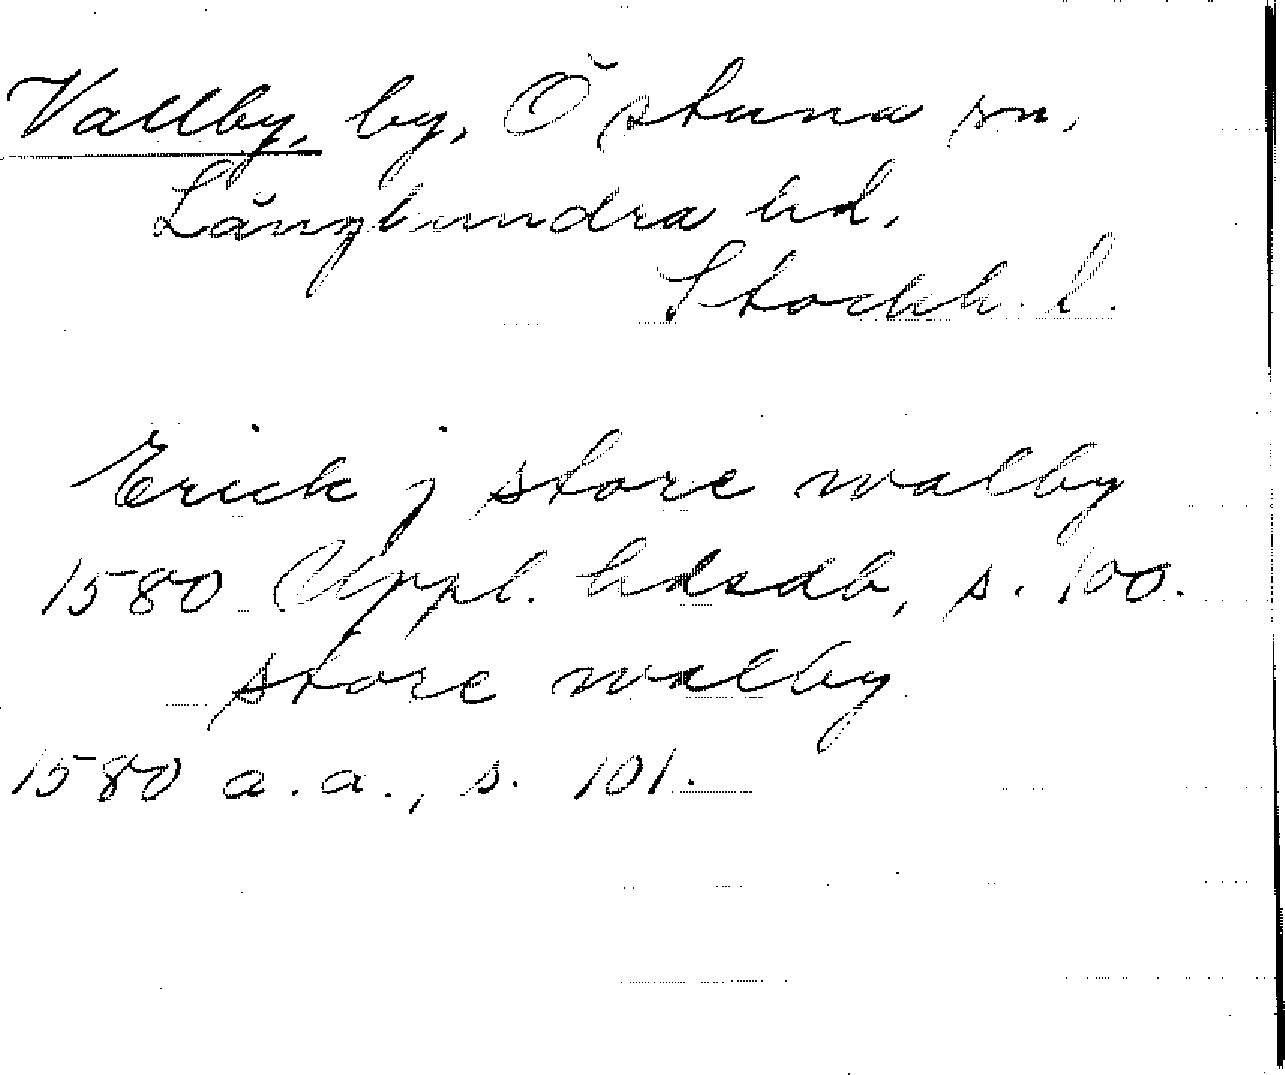 Vallby, by, Östuna sn,
Långhundra hd,
Stockh. l.
Erick j store walby
1580 Uppl. hdsdb, s. 100.
store walby
1580 a.a., s. 101.